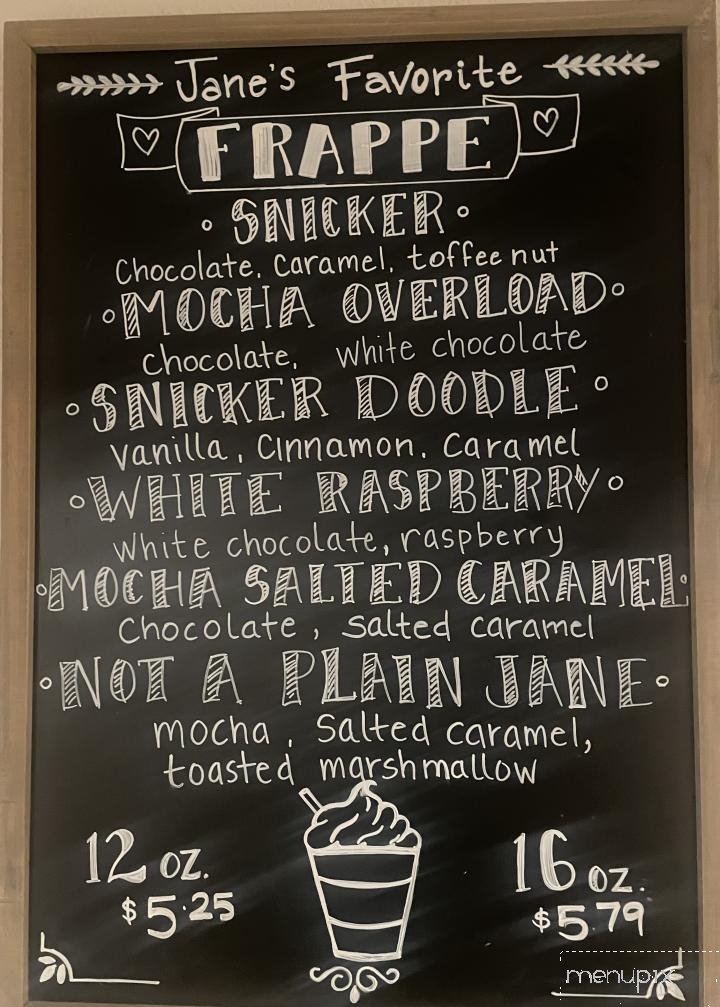 Jane's Favorite
FRAPPE
SNICKER
Chocolate, Caramel, toffee nut
MOCHA OVERLOAD
Chocolate, white chocolate
SNICKER DOODLE
Vanilla, Cinnamon, Caramel
WHITE RASPBERRY
White chocolate, raspberry
MOCHA SALTED CARAMEL
Chocolate, Salted caramel
NOT A PLAIN JANE
mocha, Salted caramel,
toasted marshmallow
12 oz. 16 oz.
$5.25 $5.79
menupix